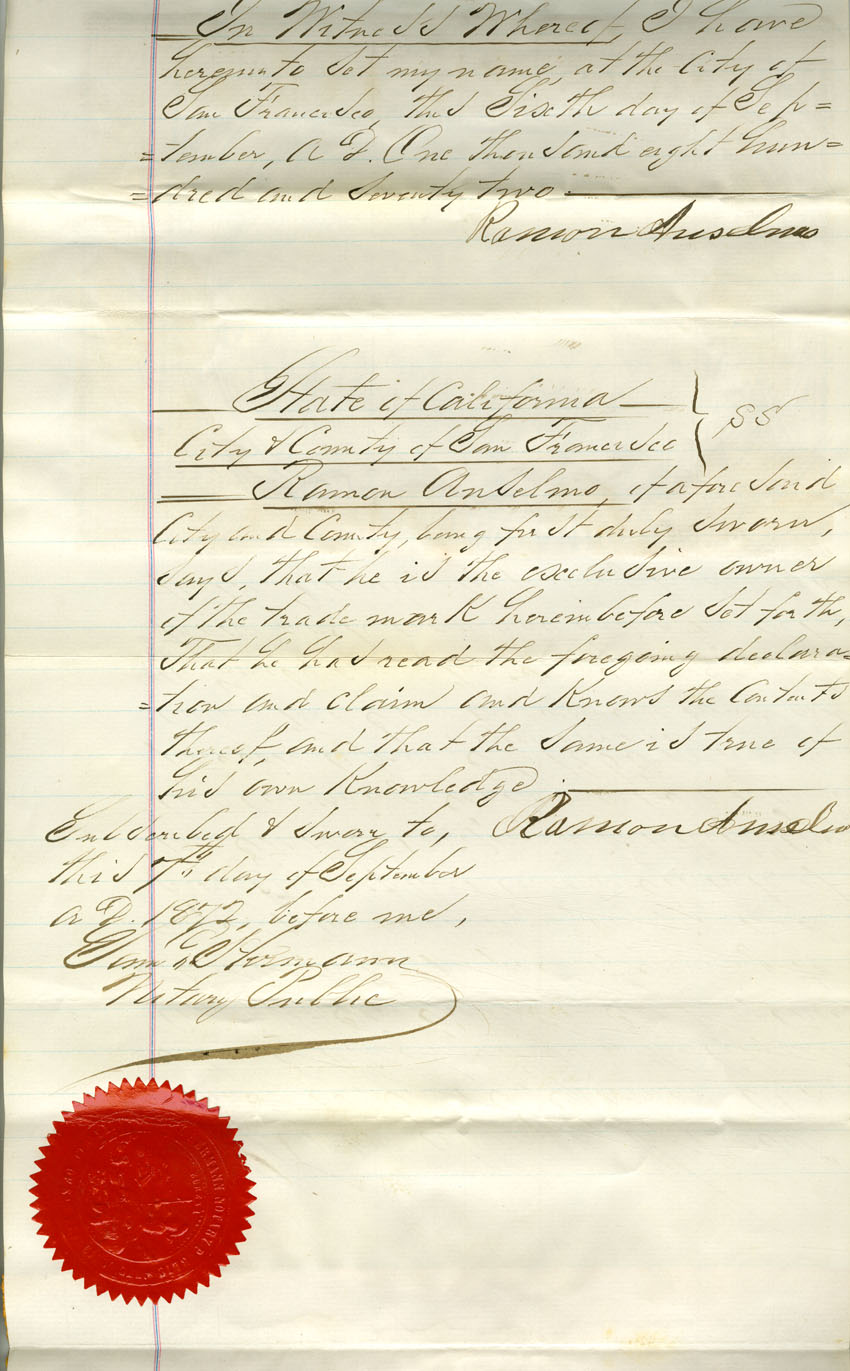 In Witness Whereof, I have
hereunto set my name, at the City of
San Francisco, this Sixth day of Sep=
=tember, A D. One thousand eight hun=
=dred and seventy two.
Ramon Anselmo
State of California
City & County of San Francisco } SS
Ramon Anselmo, of aforesaid
City and County, being first duly sworn,
says, that he is the exclusive owner
of the trade mark hereinbefore set forth,
That he has read the foregoing declara=
=tion and claim and Knows the Contents
thereof, and that the same is true of
his own Knowledge.
Ramon Anselmo
Subscribed & Sworn to,
this 7th day of September
A D. 1872, before me,
Hermann
Notary Public